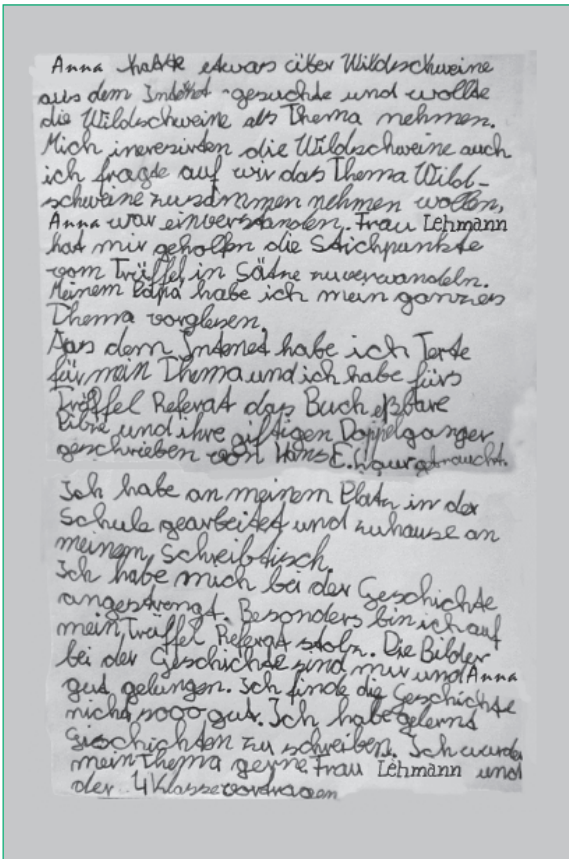 Anna hatte etwas über Wildschweine
aus dem Intenet gesuchte und wollte
die Wildschweine als Thema nehmen.
Mich ineresirten die Wildschweine auch
ich fragte auf wir das Thema Wild-
schweine zusammen nehmen wollen,
Anna war einverstanden. Frau Lehmann
hat mir geholfen die Stichpunkte
vom Trüffel in Sätze zuverwandeln.
Meinem Papa habe ich mein ganzes
Thema vorglesen.
Aus dem Intenet habe ich Texte
für mein Thema und ich habe fürs
Trüffel Referat das Buch eßbare
Pilze und ihre giftigen Doppelganger
geschrieben von Hans E. gebraucht.
Ich habe an meinem Platz in der
Schule gearbeitet und zuhause an
meinem Schreibtisch.
Ich habe mich bei der Geschichte
angestrengt. Besonders bin ich auf
mein Trüffel Referat stolz. Die Bilder
bei der Geschichte sind mir und Anna
gut gelungen. Ich finde die Geschichte
nicht sooo gut. Ich habe gelernt
Geschichten zu schreiben. Ich würde
mein Thema gerne Frau Lehmann und
der 4 Klasse vortragen